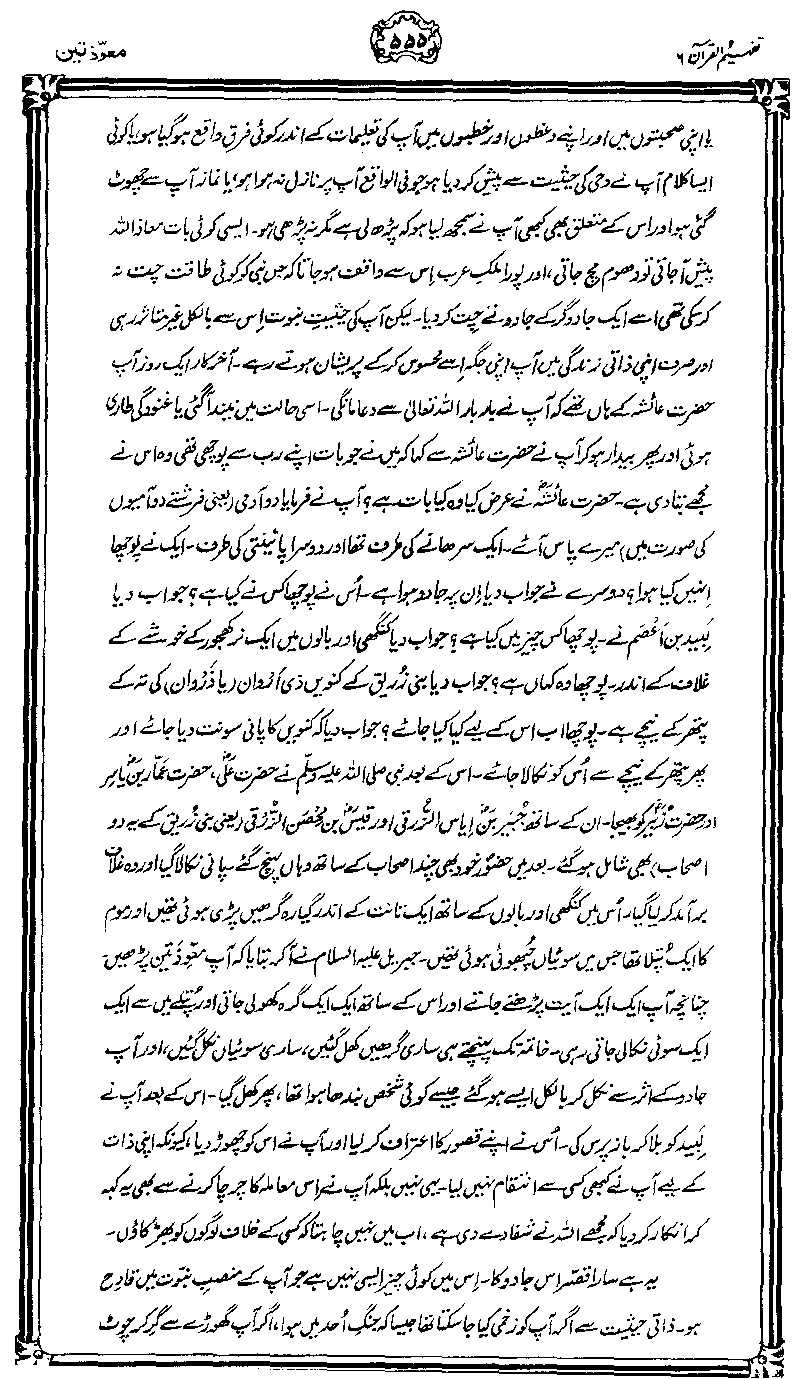 تفہیم القرآن ۶
۵۵۵
معوّذتین
یا اپنی صحبتوں میں اور اپنے وعظوں اور خطبوں میں آپ کی تعلیمات کے اندر کوئی فرق واقع ہو گیا ہو، یا کوئی
ایسا کلام آپ نے وحی کی حیثیت سے پیش کر دیا ہو جو فی الواقع آپ پر نازل نہ ہوا ہو، یا نماز آپ سے چھوٹ
گئی ہو اور اس کے متعلق بھی کبھی آپ نے سمجھ لیا ہو کہ پڑھ لی ہے مگر نہ پڑھی ہو۔ ایسی کوئی بات معاذ اللہ
پیش آ جاتی تو دھوم مچ جاتی، اور پورا ملک عرب اِس سے واقف ہو جاتا کہ جس نبی کو کوئی طاقت چت نہ
کر سکی تھی اسے ایک جادوگر کے جادو نے چت کر دیا۔ لیکن آپ کی حیثیتِ نبوت اِس سے بالکل غیر متاثر رہی
اور صرف اپنی ذاتی زندگی میں آپ اپنی جگہ اِسے محسوس کر کے پریشان ہوتے رہے۔ آخر کار ایک روز آپ
حضرت عائشہ کے ہاں تھے کہ آپ نے بار بار اللہ تعالیٰ سے دعا مانگی۔ اسی حالت میں نیند آگئی یا غنودگی طاری
ہوئی اور پھر بیدار ہو کر آپ نے حضرت عائشہ سے کہا کہ میں نے جو بات اپنے رب سے پوچھی تھی وہ اس نے
مجھے بتا دی ہے۔ حضرت عائشہؓ نے عرض کیا وہ کیا بات ہے؟ آپ نے فرمایا دو آدمی (یعنی فرشتے دو آدمیوں
کی صورت میں) میرے پاس آئے۔ ایک سرھانے کی طرف تھا اور دوسرا پائینتی کی طرف۔ ایک نے پوچھا
اِنہیں کیا ہوا؟ دوسرے نے جواب دیا اِن پر جادو ہوا ہے۔ اُس نے پوچھا کس نے کیا ہے؟ جواب دیا
لَبید بن اَعْصَم نے۔ پوچھا کس چیز میں کیا ہے؟ جواب دیا کنگھی اور بالوں میں ایک نر کھجور کے خوشے کے
غلاف کے اندر۔ پوچھا وہ کہاں ہے؟ جواب دیا بنی زُرَیق کے کنویں ذی اَرْوان (یا ذَرْوان) کی تہ کے
پتھر کے نیچے ہے۔ پوچھا اب اس کے لیے کیا کیا جائے؟ جواب دیا کہ کنویں کا پانی سونت دیا جائے اور
پھر پتھر کے نیچے سے اُس کو نکالا جائے۔ اس کے بعد نبی صلی اللہ علیہ وسلّم نے حضرت علیؓ، حضرت عمّارؓ بن یاسِر
اور حضرت زُبیرؓ کو بھیجا۔ ان کے ساتھ جُبیر بنؓ اِیاس الزُّرَقی اور قیسؓ بن مِحْصَن الزُّرَقی (یعنی بنی زُریق کے یہ دو
اصحاب) بھی شامل ہو گئے۔ بعد میں حضورؐ خود بھی چند اصحاب کے ساتھ وہاں پہنچ گئے۔ پانی نکالا گیا اور وہ غلاف
برآمد کر لیا گیا۔ اُس میں کنگھی اور بالوں کے ساتھ ایک تانت کے اندر گیارہ گرھیں پڑی ہوئی تھیں اور موم
کا ایک پُتلا تھا جس میں سوئیاں چُبھوئی ہوئی تھیں۔ جبریل علیہ السلام نے آ کر بتایا کہ آپ معوّذَتین پڑھیں۔
چنانچہ آپ ایک ایک آیت پڑھتے جاتے اور اس کے ساتھ ایک ایک گرہ کھولی جاتی اور پُتلے میں سے ایک
ایک سوئی نکالی جاتی رہی۔ خاتمہ تک پہنچتے ہی ساری گرھیں کھل گئیں، ساری سوئیاں نکل گئیں، اور آپ
جادو کے اثر سے نکل کر بالکل ایسے ہو گئے جیسے کوئی شخص بندھا ہوا تھا، پھر کھل گیا۔ اس کے بعد آپ نے
لَبید کو بلا کر باز پرس کی۔ اُس نے اپنے قصور کا اعتراف کر لیا اور آپ نے اس کو چھوڑ دیا، کیونکہ اپنی ذات
کے لیے آپ نے کبھی کسی سے انتقام نہیں لیا۔ یہی نہیں بلکہ آپ نے اِس معاملہ کا چرچا کرنے سے بھی یہ کہہ
کر انکار کر دیا کہ مجھے اللہ نے شفا دے دی ہے، اب میں نہیں چاہتا کہ کسی کے خلاف لوگوں کو بھڑکاؤں۔
یہ ہے سارا قصّہ اِس جادو کا۔ اِس میں کوئی چیز ایسی نہیں ہے جو آپ کے منصبِ نبوت میں قادح
ہو۔ ذاتی حیثیت سے اگر آپ کو زخمی کیا جا سکتا تھا جیسا کہ جنگِ اُحد میں ہوا، اگر آپ گھوڑے سے گر کر چوٹ